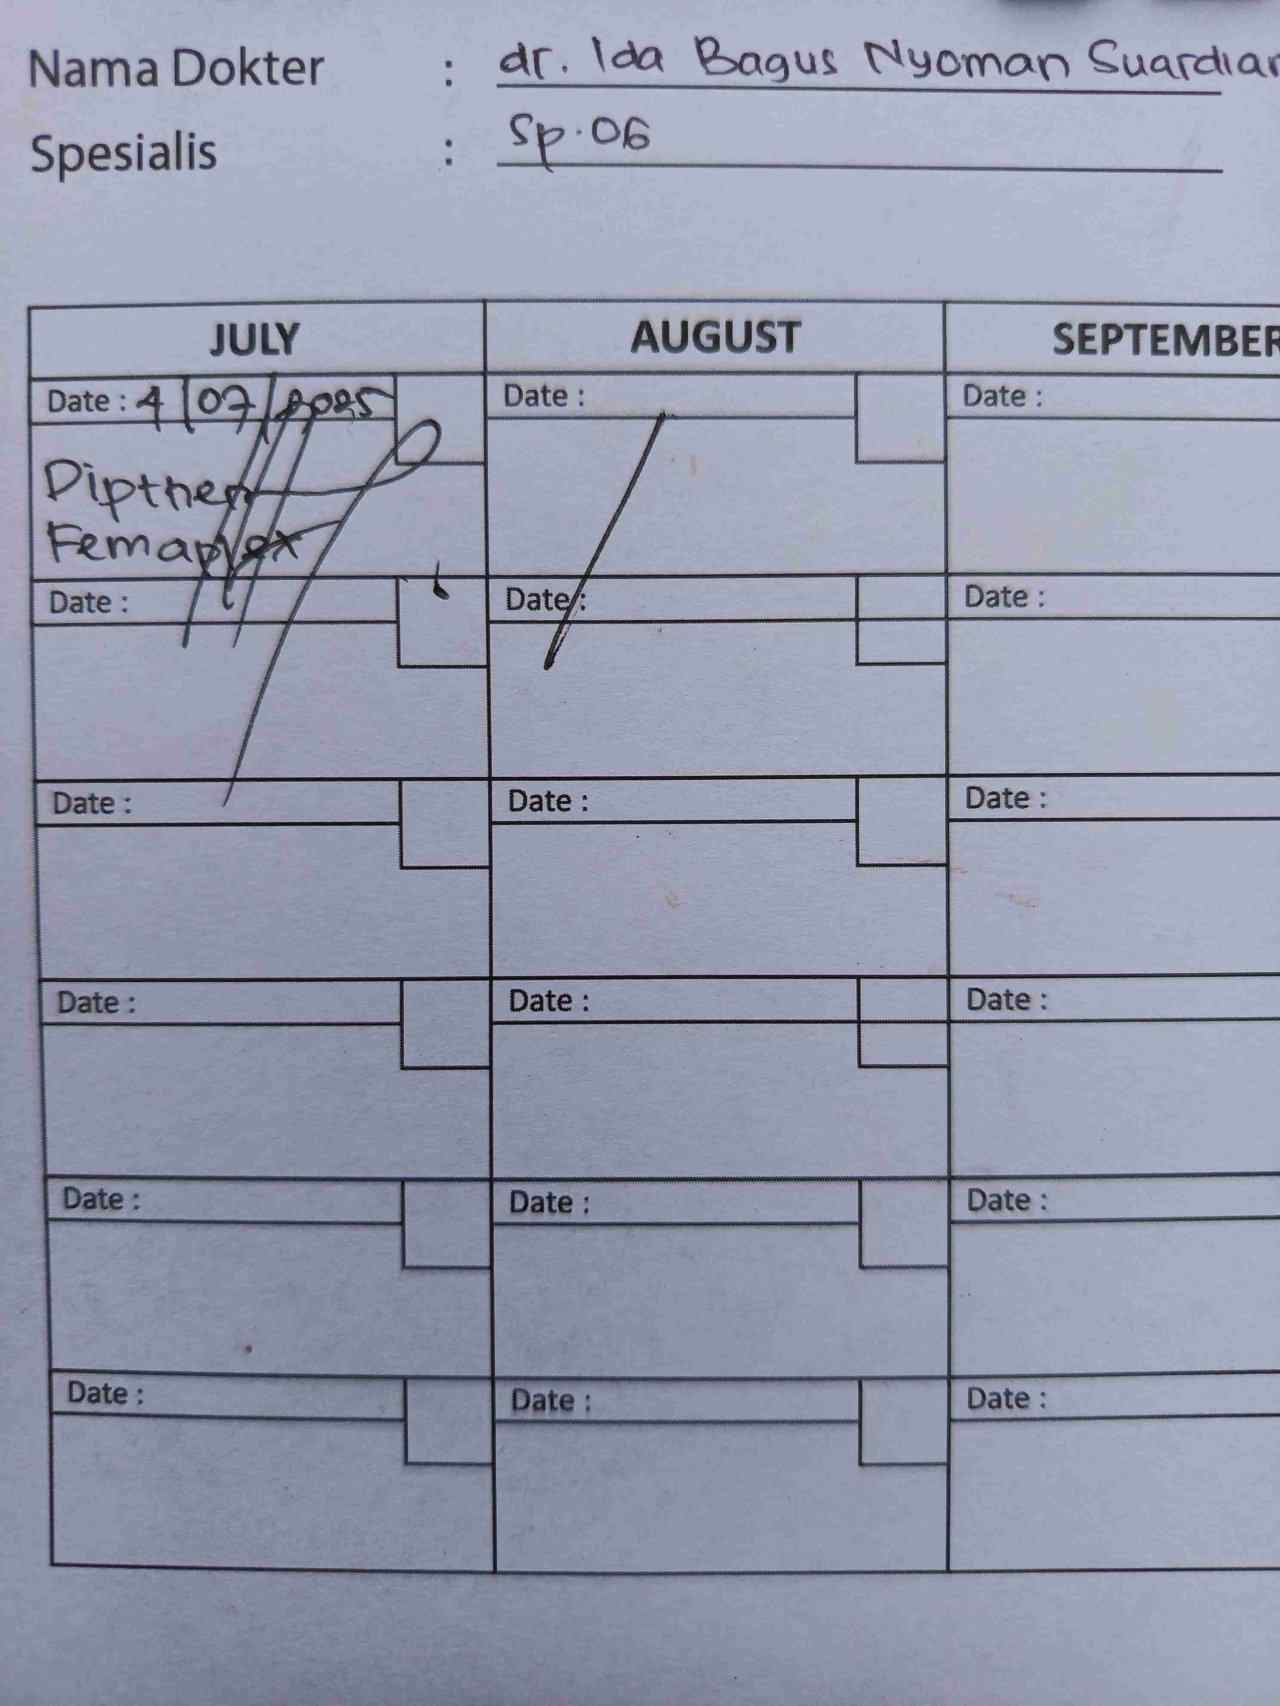 Nama Dokter : dr. Ida Bagus Nyoman Suardian
Spesialis : Sp.OG
JULY AUGUST SEPTEMBER
Date : 4/07/2025 Date : Date :
Dipthen
Femaplex
Date : Date : Date :
Date : Date : Date :
Date : Date : Date :
Date : Date : Date :
Date : Date : Date :